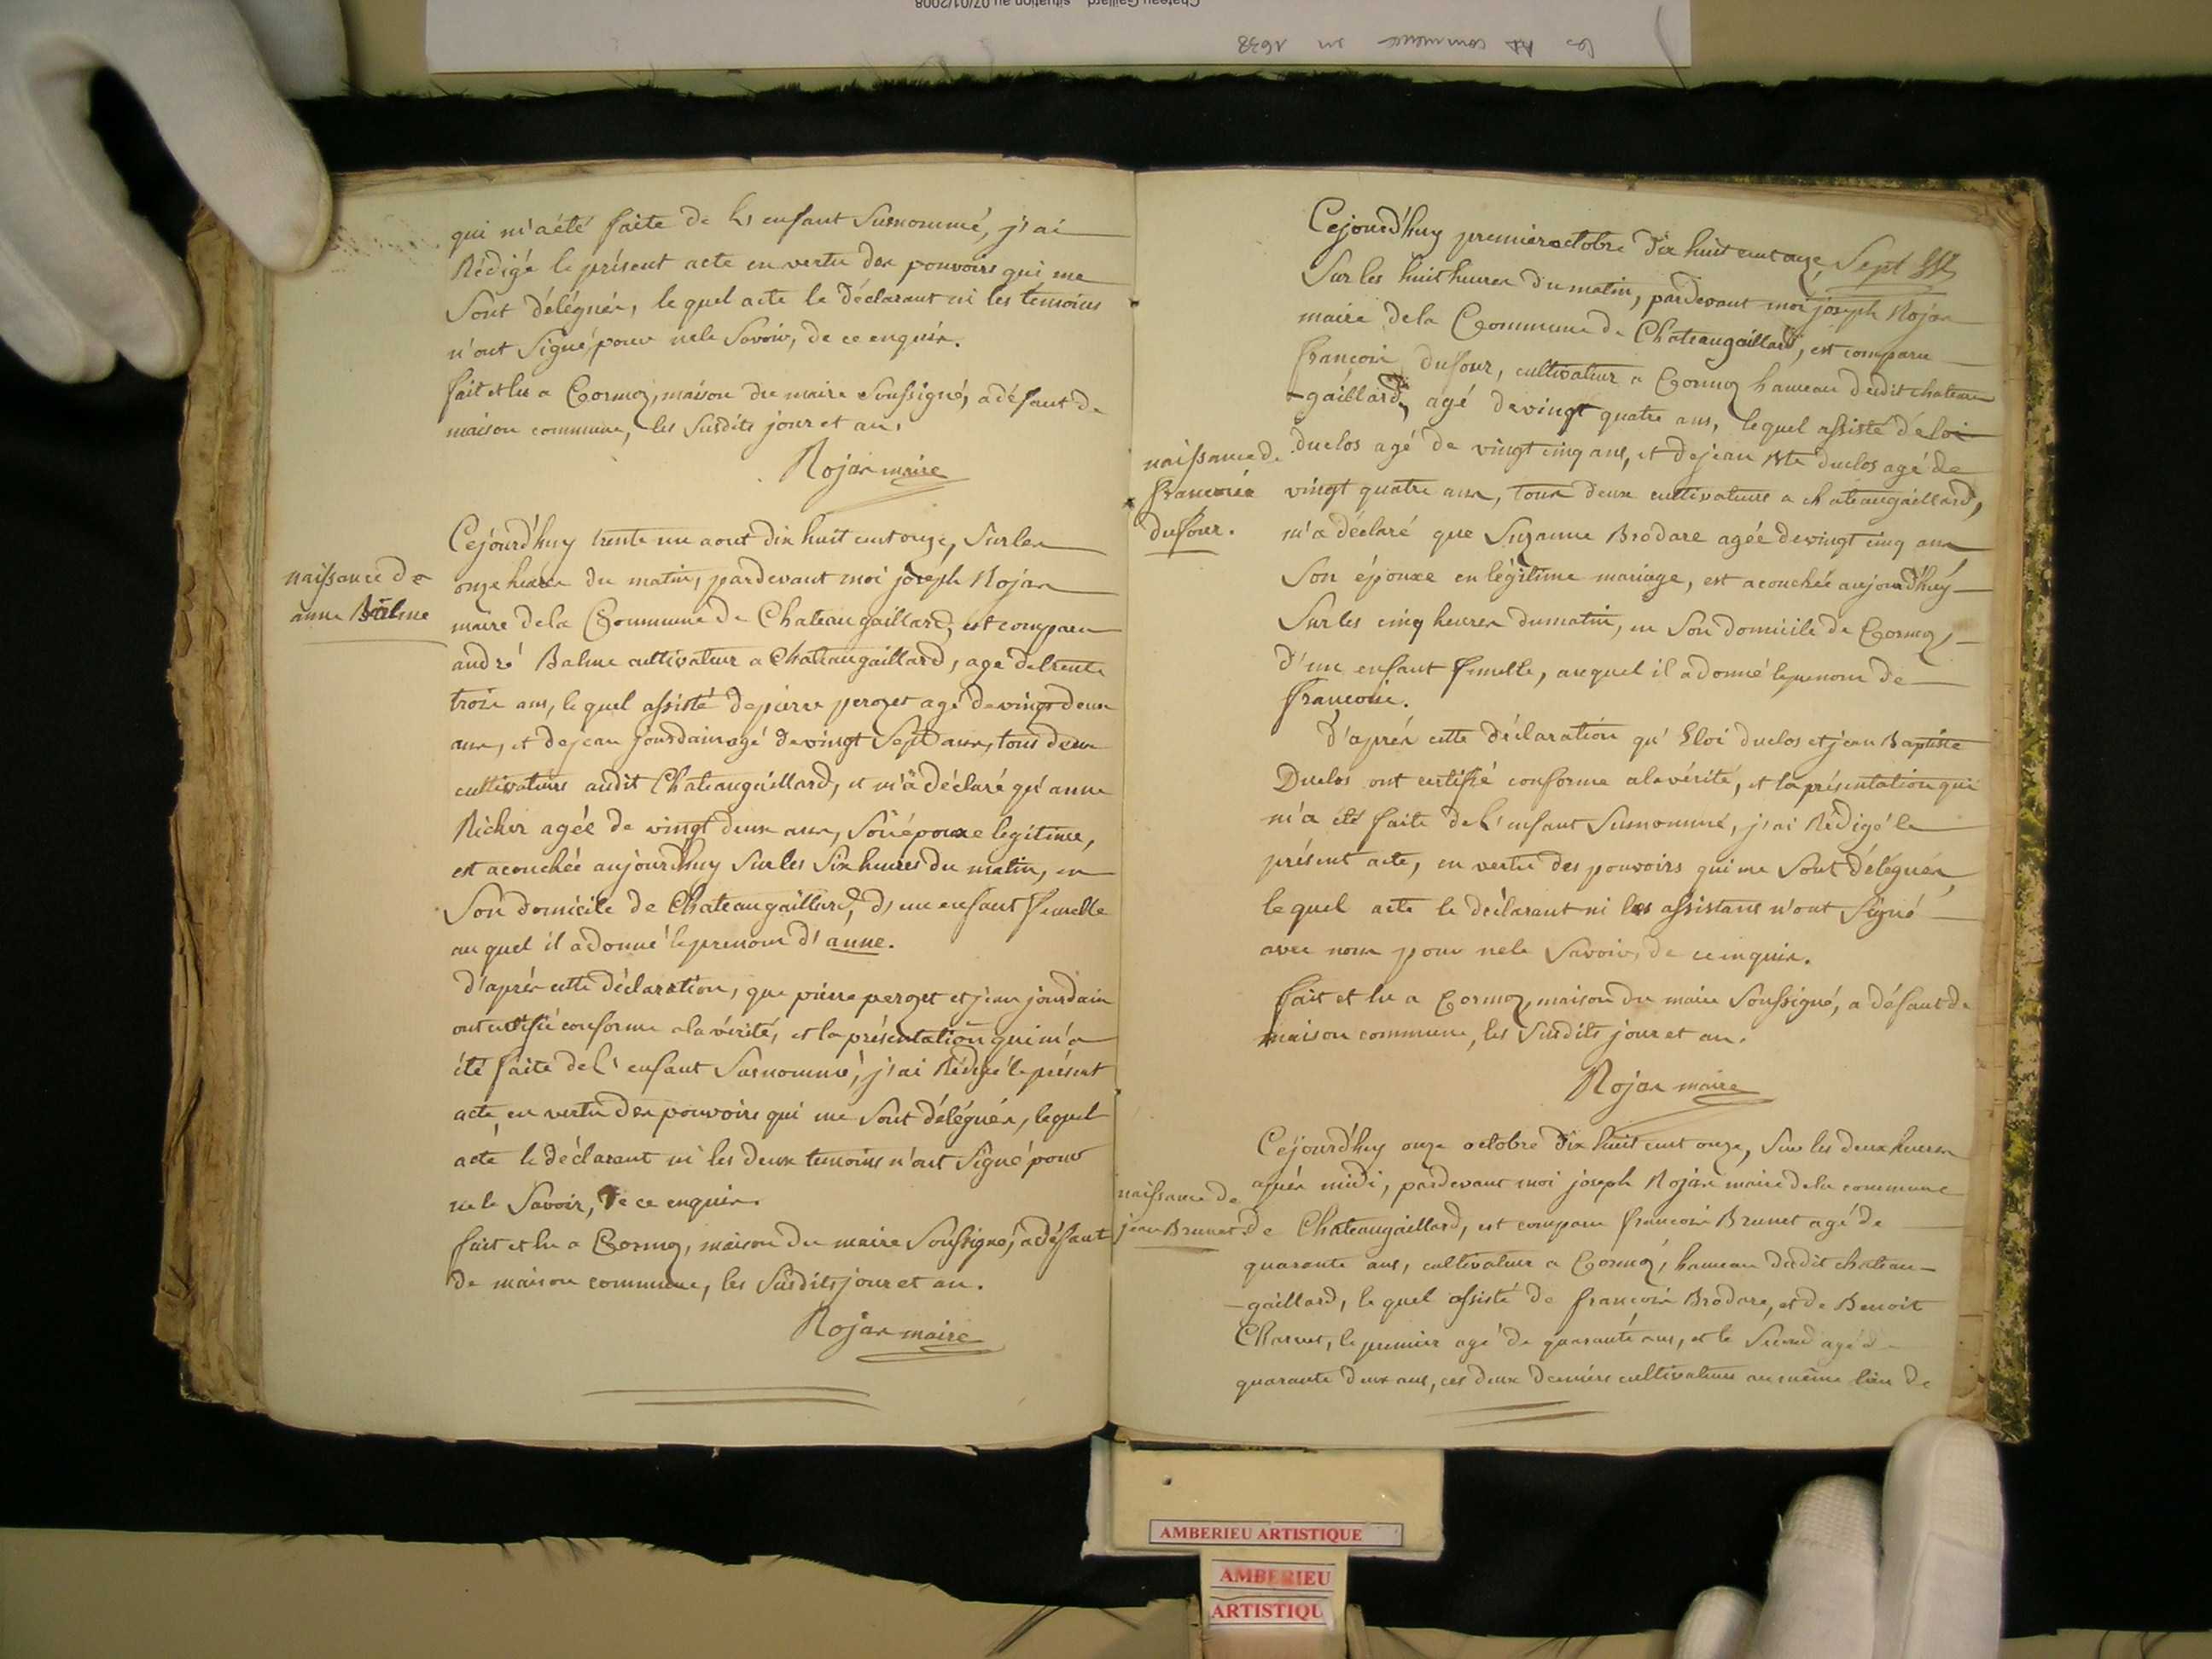 Chateau Gaillard situation au 07/01/2008
les commence en 1638
qui m'a été faite de l'enfant Surnommé, j'ai
Rédigé le présent acte en vertu des pouvoirs qui me
Sont délégués, le quel acte le Déclarant ni les temoins
n'ont Signé pour ne le Savoir, de ce enquis.
fait et lu a Cormoz, maison du maire Soussigné, a défaut de
maison commune, les Susdits jour et an.
Rojas maire
naissance de
anne Balme
Cejourd'huy trente un aout dix huit cent onze, Sur les
onze heures du matin, pardevant moi joseph Rojas
maire dela Commune de Chateaugaillard, est comparu
andré Balme cultivateur a Chateaugaillard, agé de trente
trois ans, le quel assisté de pierre perozet agé de vingt deux
ans, et de jean jourdain agé de vingt Sept ans, tous deux
cultivateurs audit Chateaugaillard, et m'a déclaré qu'anne
Richer agée de vingt deux ans, Son épouse legitime,
est acouchée aujourdhuy Sur les Six heures du matin, en
Son domicile de Chateaugaillard, d'une enfant femelle
au quel il a donné le prenom d'anne.
d'après cette déclaration, que pierre perozet et jean jourdain
ont certifié conforme a la vérité, et la présentation qui m'a
été faite de l'enfant Surnommé, j'ai Rédigé le présent
acte, en vertu des pouvoirs qui me Sont délégués, lequel
acte le déclarant ni les deux temoins n'ont Signé pour
ne le Savoir, de ce enquis.
fait et lu a Cormoz, maison du maire Soussigné, a défaut
de maison commune, les Susdits jour et an.
Rojas maire
Cejourd'huy premier octobre dix huit cent onze, Sept
Sur les huit heures du matin, pardevant moi joseph Rojas
maire dela Commune de Chateaugaillard, est comparu
françois dufour, cultivateur a Cormoz hameau dudit chateau
-gaillard, agé de vingt quatre ans, lequel assisté d'eloi
naissance de
françoise
dufour.
duclos agé de vingt cinq ans, et de jean Bte duclos agé de
vingt quatre ans, tous deux cultivateurs a chateaugaillard,
m'a déclaré que Suzanne Brodare agée de vingt cinq ans
Son épouse en légitime mariage, est acouchée aujourd'huy
Sur les cinq heures du matin, en Son domicile de Cormoz,
d'une enfant femelle, auquel il a donné le prenom de
françoise.
d'après cette déclaration qu'Eloi duclos et jean Baptiste
Duclos ont certifié conforme a la vérité, et la présentation qui
m'a été faite de l'enfant Surnommé, j'ai Rédigé le
présent acte, en vertu des pouvoirs qui me Sont délégués,
le quel acte le déclarant ni les assistans n'ont Signé
avec nous pour ne le Savoir, de ce enquis.
fait et lu a Cormoz, maison du maire Soussigné, a défaut de
maison commune, les Susdits jour et an.
Rojas maire
Cejourd'huy onze octobre dix huit cent onze, Sur les deux heures
naissance de
jean Brunet
après midi, pardevant moi joseph Rojas maire dela commune
de Chateaugaillard, est comparu françois Brunet agé de
quarante ans, cultivateur a Cormoz, hameau dudit chateau-
-gaillard, le quel assisté de françois Brodare, et de Benoit
Charvet, le premier agé de quarante ans, et le Second agé de
quarante deux ans, ces deux derniers cultivateurs au même lieu de
AMBERIEU ARTISTIQUE
AMBERIEU
ARTISTIQU